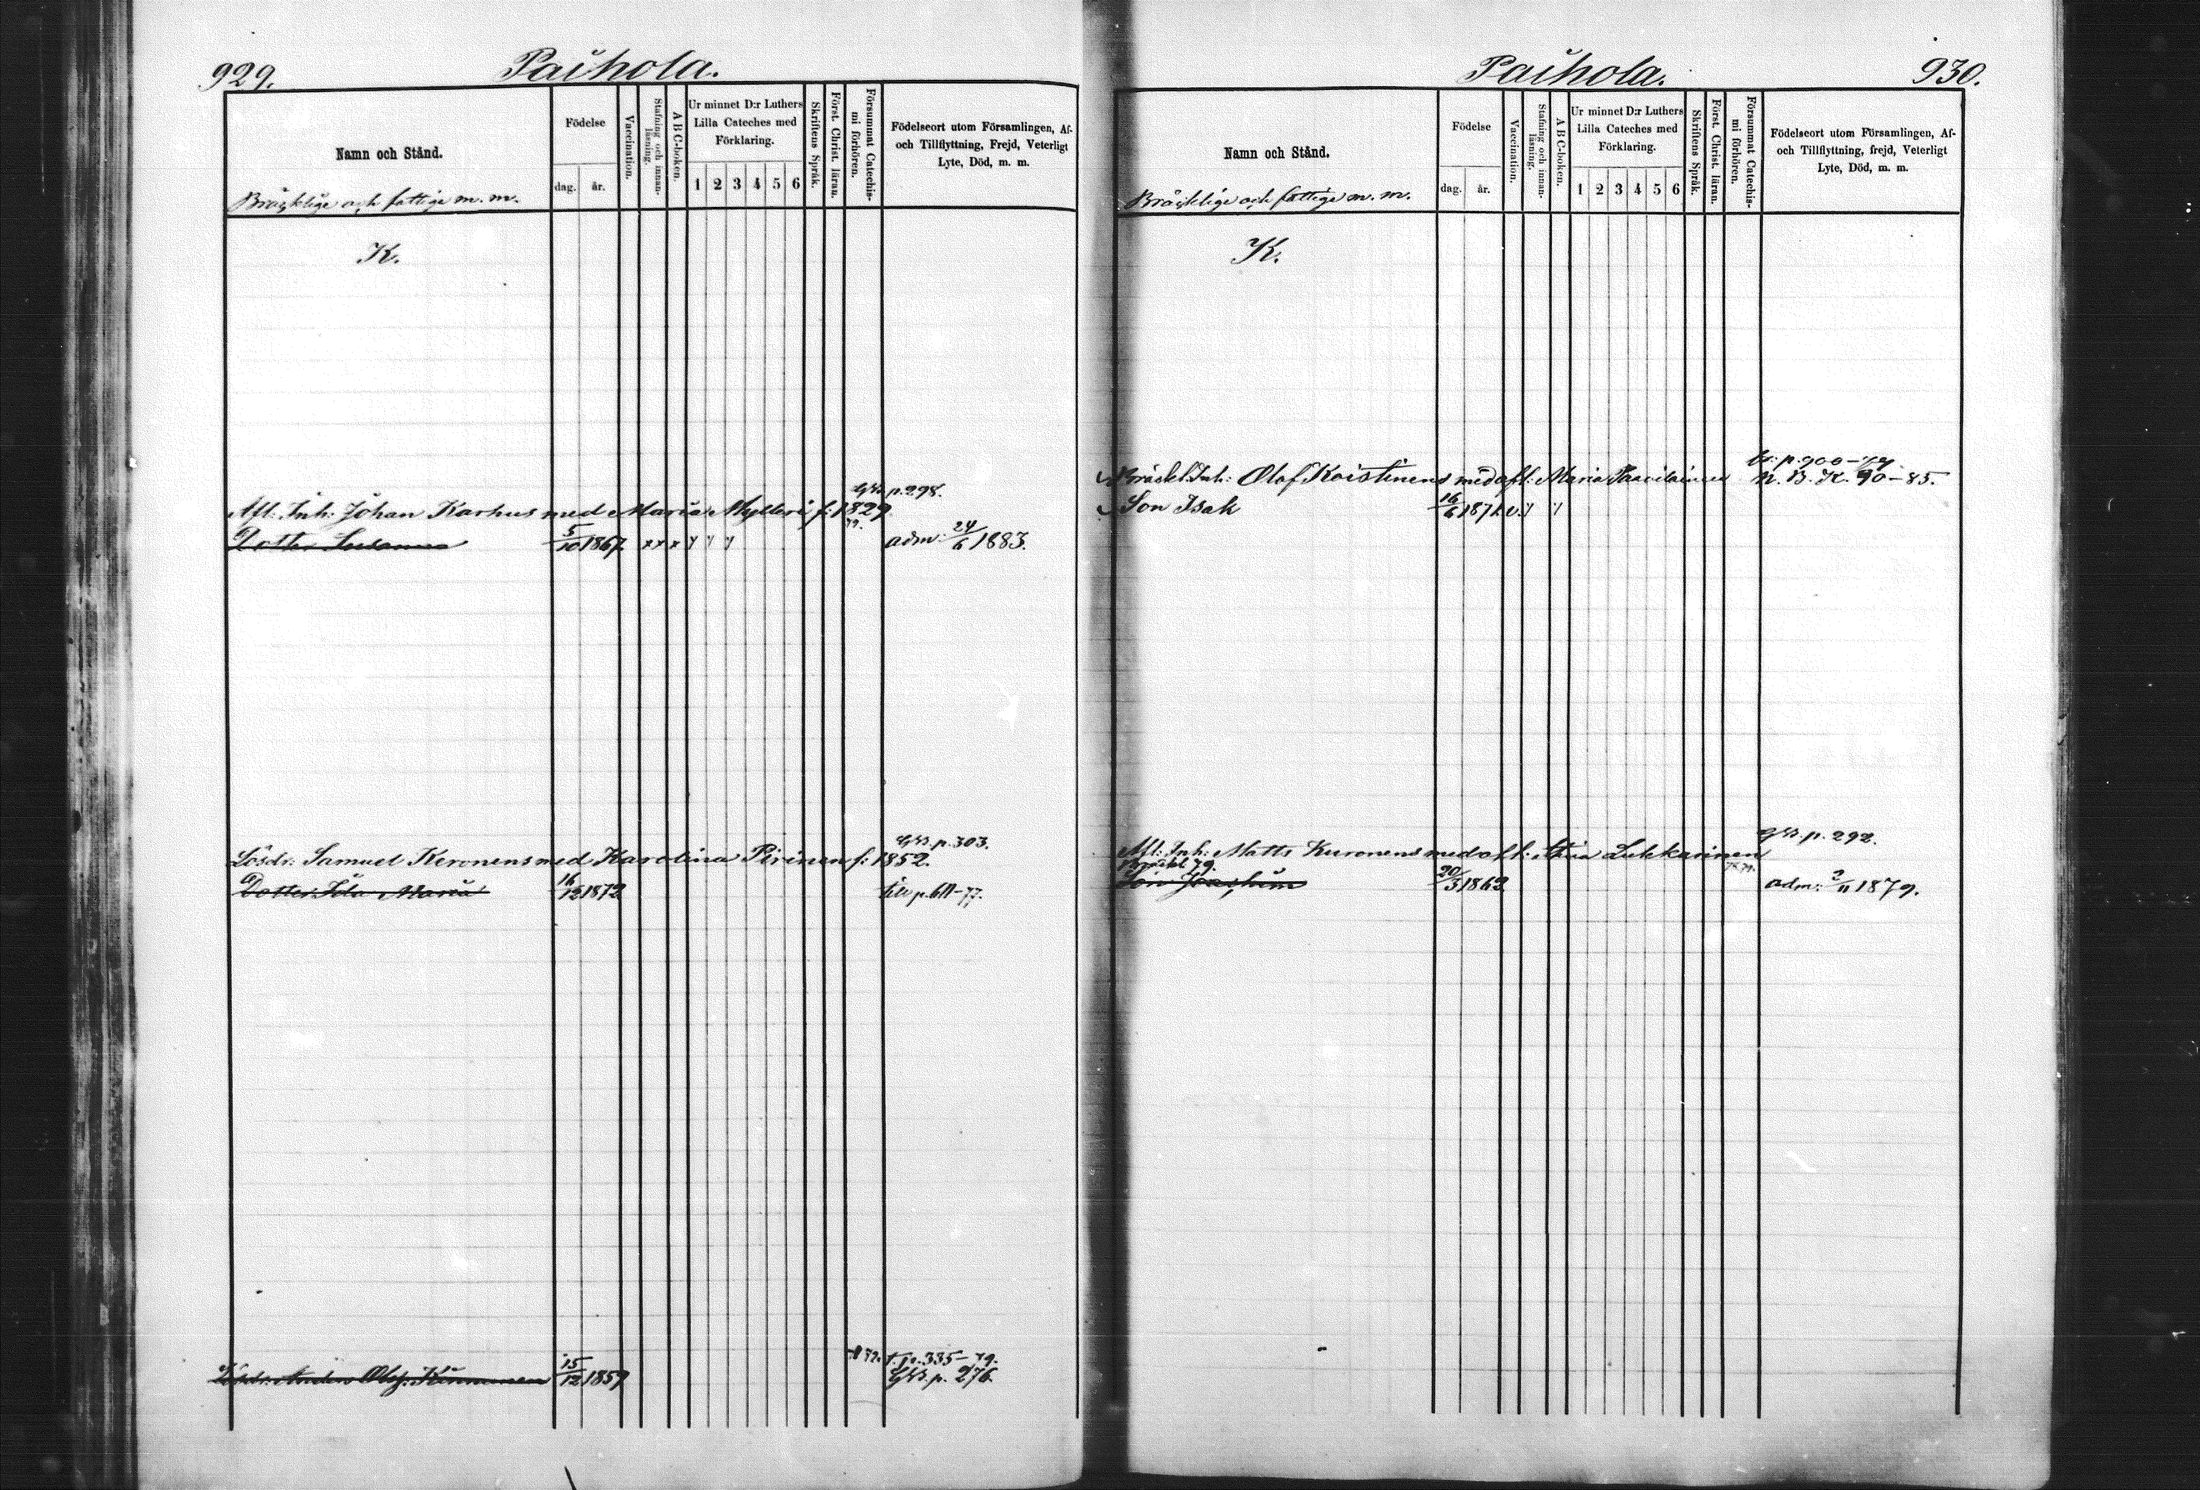 929.
Paihola.
Namn och Stånd.
Bräcklige och fattige m. m.
Födelse
dag.
år.
Vaccination.
Stafning och innanläsning.
A B C-boken.
Ur minnet D:r Luthers
Lilla Cateches med
Förklaring.
1 2 3 4 5 6
Skriftens Språk.
Först. Christ. läran.
Försummat Catechismi förhören.
Födelseort utom Församlingen, Af-
och Tillflyttning, Frejd, Veterligt
Lyte, Död, m. m.
K.
p. 298.
Afl. Inh: Johan Karhus med Maria Mylleri f: 1829
79.
Dotter Susanna 5/10 1867. x x x y y y adm: 24/6 1883.
p. 303.
Lösdr: Samuel Keronens med Karolina Pirinen f: 1852.
Dotter Ida Maria 16/12 1872 p. 611-77.
79. t. p. 335-79.
Lösdr: Anders Olof Kinnunen 15/12 1859 p. 276.
Paihola.
930.
Namn och Stånd.
Bräcklige och fattige m. m.
Födelse
dag.
år.
Vaccination.
Stafning och innanläsning.
A B C-boken.
Ur minnet D:r Luthers
Lilla Cateches med
Förklaring.
1 2 3 4 5 6
Skriftens Språk.
Först. Christ. läran.
Försummat Catechismi förhören.
Födelseort utom Församlingen, Af-
och Tillflyttning, frejd, Veterligt
Lyte, Död, m. m.
K.
p. 900-79
Bräckl. Inh: Olof Koistinens med afl: Maria Paavilainen N. B. K. 90-85.
Son Isak 16/6 1871. v. y y
p. 292.
Afl: Inh: Matts Kuronens med afl: Anna Lukkarinen
Bräckl. 79.
Son Joachim 20/3 1863 adm: 2/11 1879.